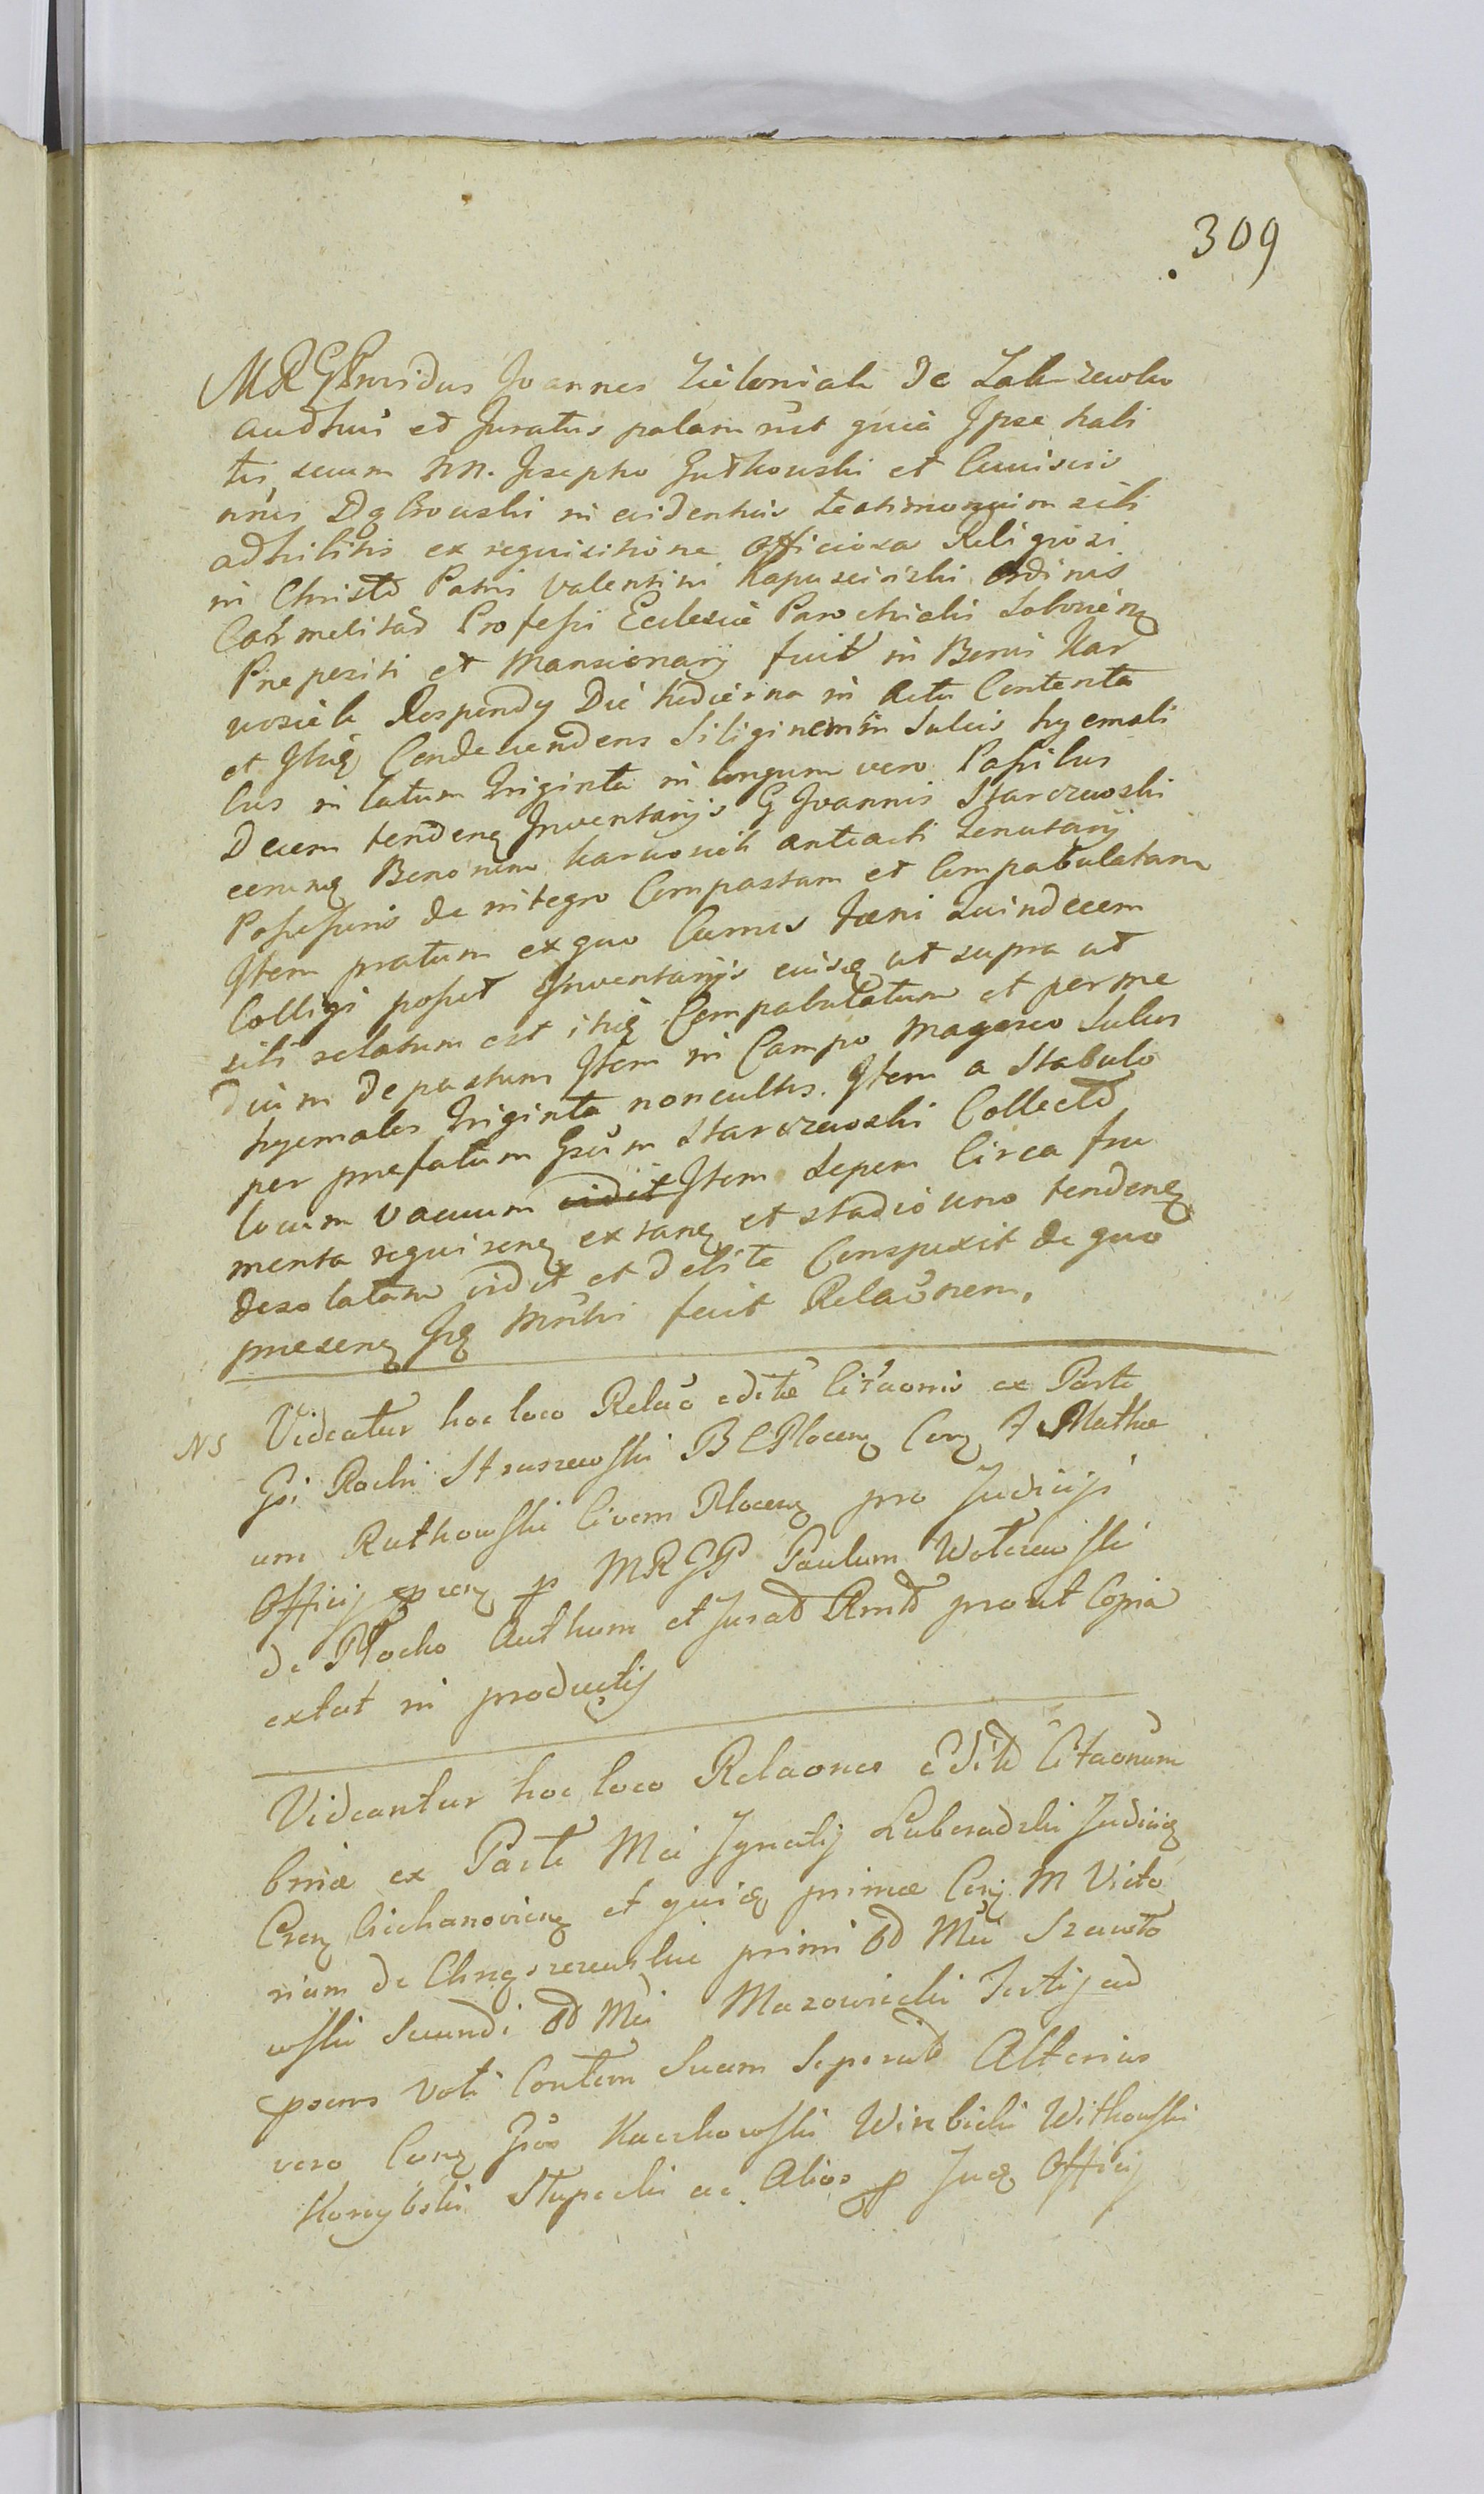 309
MRG Providus Joannes Zieloniak de Zakrzewko
authus et Juratus palam rct quia Ipse habi
tis secum NN. Josepho Gutkowski et
Dąbrowski in evidentius testimonium sibi
adhibitis ex requisitione officiosa Religiosi
in Christo Patris Valentini Kapuscinski Ordinis
Carmelitar Professi Ecclesiæ Parochialis
Prepositi et Mansionarij fuit in Bonis Kar
wosieki Die hodierna in Actu Contenta
et Condescendens Siliginem in Sulcis hyemali
bus in latum triginta in longum vero Passibus
Decem tendenę Inventarijs G Joannis Starczewski
eorumę Bonorum Karwosieki anteacti Tenutarij
Possessoris de integro Compastam et Compabulatam
Item pratum ex quo Currus foeni Quindecem
Colligi posset Inventarijs eiusę ut supra ut
sibi relatum est itię Compabulatum et per me
dium depastum Item in Campo Magesco Sulcos
hyemales triginta non cultos. Item a Stabulo
per prefatum Gsum Starczewski Collecto
locum vacuum vidit Item Sepem Circa fru
menta requirenę extanę et stadio uno tendenę
desolatam vidit et debite Conspexit de quo
presenę Iuę Mnthi fecit Relaõnem.
NB Videatur hoc loco Relaõ editæ Citaonis ex Parte
Gsi Rochi Straszewski B C Plocenę Conę F Mathæ
um Rutkowski Civem Plocenę pro Judicijs
Officij pzenę p MRGP Paulum
de Płocko Authum et Jurat Rmtd prout Copia
extat in productis
Videantur hoc loco Relaones edit Citaonum
binæ ex Parte Mci Ignatij Luberadzki Judicię
Czren Ciechanoviens et quidę primæ Conę M Victo
riam de primi od Mci Szawło
wski Secundi od Mci Mazowiecki Tertij ad
psens voti Contem Suam Seperat Alterius
vero Conę Gsos Kaczkowski Wierzbicki Witkowski
Korzybski Słupecki ac Alios p Judę Officij